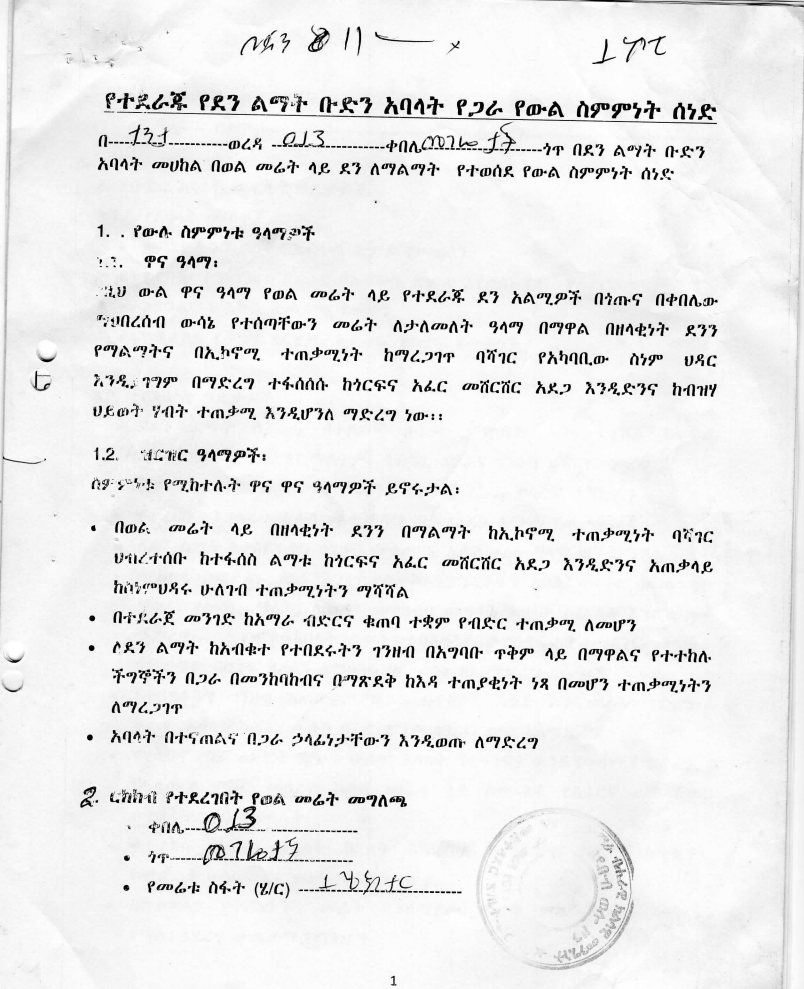 የተደራጁ የደን ልማት ቡድን አባላት የጋራ የውል ስምምነት ሰነድ
በ----------ወረዳ 013----------ቀበሌ----------ጎጥ በደን ልማት ቡድን
አባላት መሀከል በወል መሬት ላይ ደን ለማልማት የተወሰደ የውል ስምምነት ሰነድ
1. . የውሉ ስምምነቱ ዓላማዎች
ዋና ዓላማ፡
ውል ዋና ዓላማ የወል መሬት ላይ የተደራጁ ደን አልሚዎች በጎጡና በቀበሌው
ማህበረሰብ ውሳኔ የተሰጣቸውን መሬት ለታለመለት ዓላማ በማዋል በዘላቂነት ደንን
የማልማትና በኢኮኖሚ ተጠቃሚነት ከማረጋገጥ ባሻገር የአካባቢው ስነም ህዳር
እንዲያገግም በማድረግ ተፋሰሰሱ ከጎርፍና አፈር መሸርሸር አደጋ እንዲድንና ከብዝሃ
ህይወት ሃብት ተጠቃሚ እንዲሆንለ ማድረግ ነው፡፡
1.2. ዝርዝር ዓላማዎች፡
ስምምነቱ የሚከተሉት ዋና ዋና ዓላማዎች ይኖሩታል፡
• በወል መሬት ላይ በዘላቂነት ደንን በማልማት ከኢኮኖሚ ተጠቃሚነት ባሻገር
ህብረተሰቡ ከተፋሰስ ልማቱ ከጎርፍና አፈር መሸርሸር አደጋ እንዲድንና አጠቃላይ
ከስነምህዳሩ ሁለገብ ተጠቃሚነትን ማሻሻል
• በተደራጀ መንገድ ከአማራ ብድርና ቁጠባ ተቋም የብድር ተጠቃሚ ለመሆን
• ለደን ልማት ከአብቁተ የተበደሩትን ገንዘብ በአግባቡ ጥቅም ላይ በማዋልና የተተከሉ
ችግኞችን በጋራ በመንከባከብና በማጽደቅ ከእዳ ተጠያቂነት ነጻ በመሆን ተጠቃሚነትን
ለማረጋገጥ
• አባላት በተናጠልና በጋራ ኃላፊነታቸውን እንዲወጡ ለማድረግ
2. ርክክብ የተደረገበት የወል መሬት መግለጫ
• ቀበሌ----013----------
• ጎጥ----------
• የመሬቱ ስፋት (ሄ/ር) ----------
1